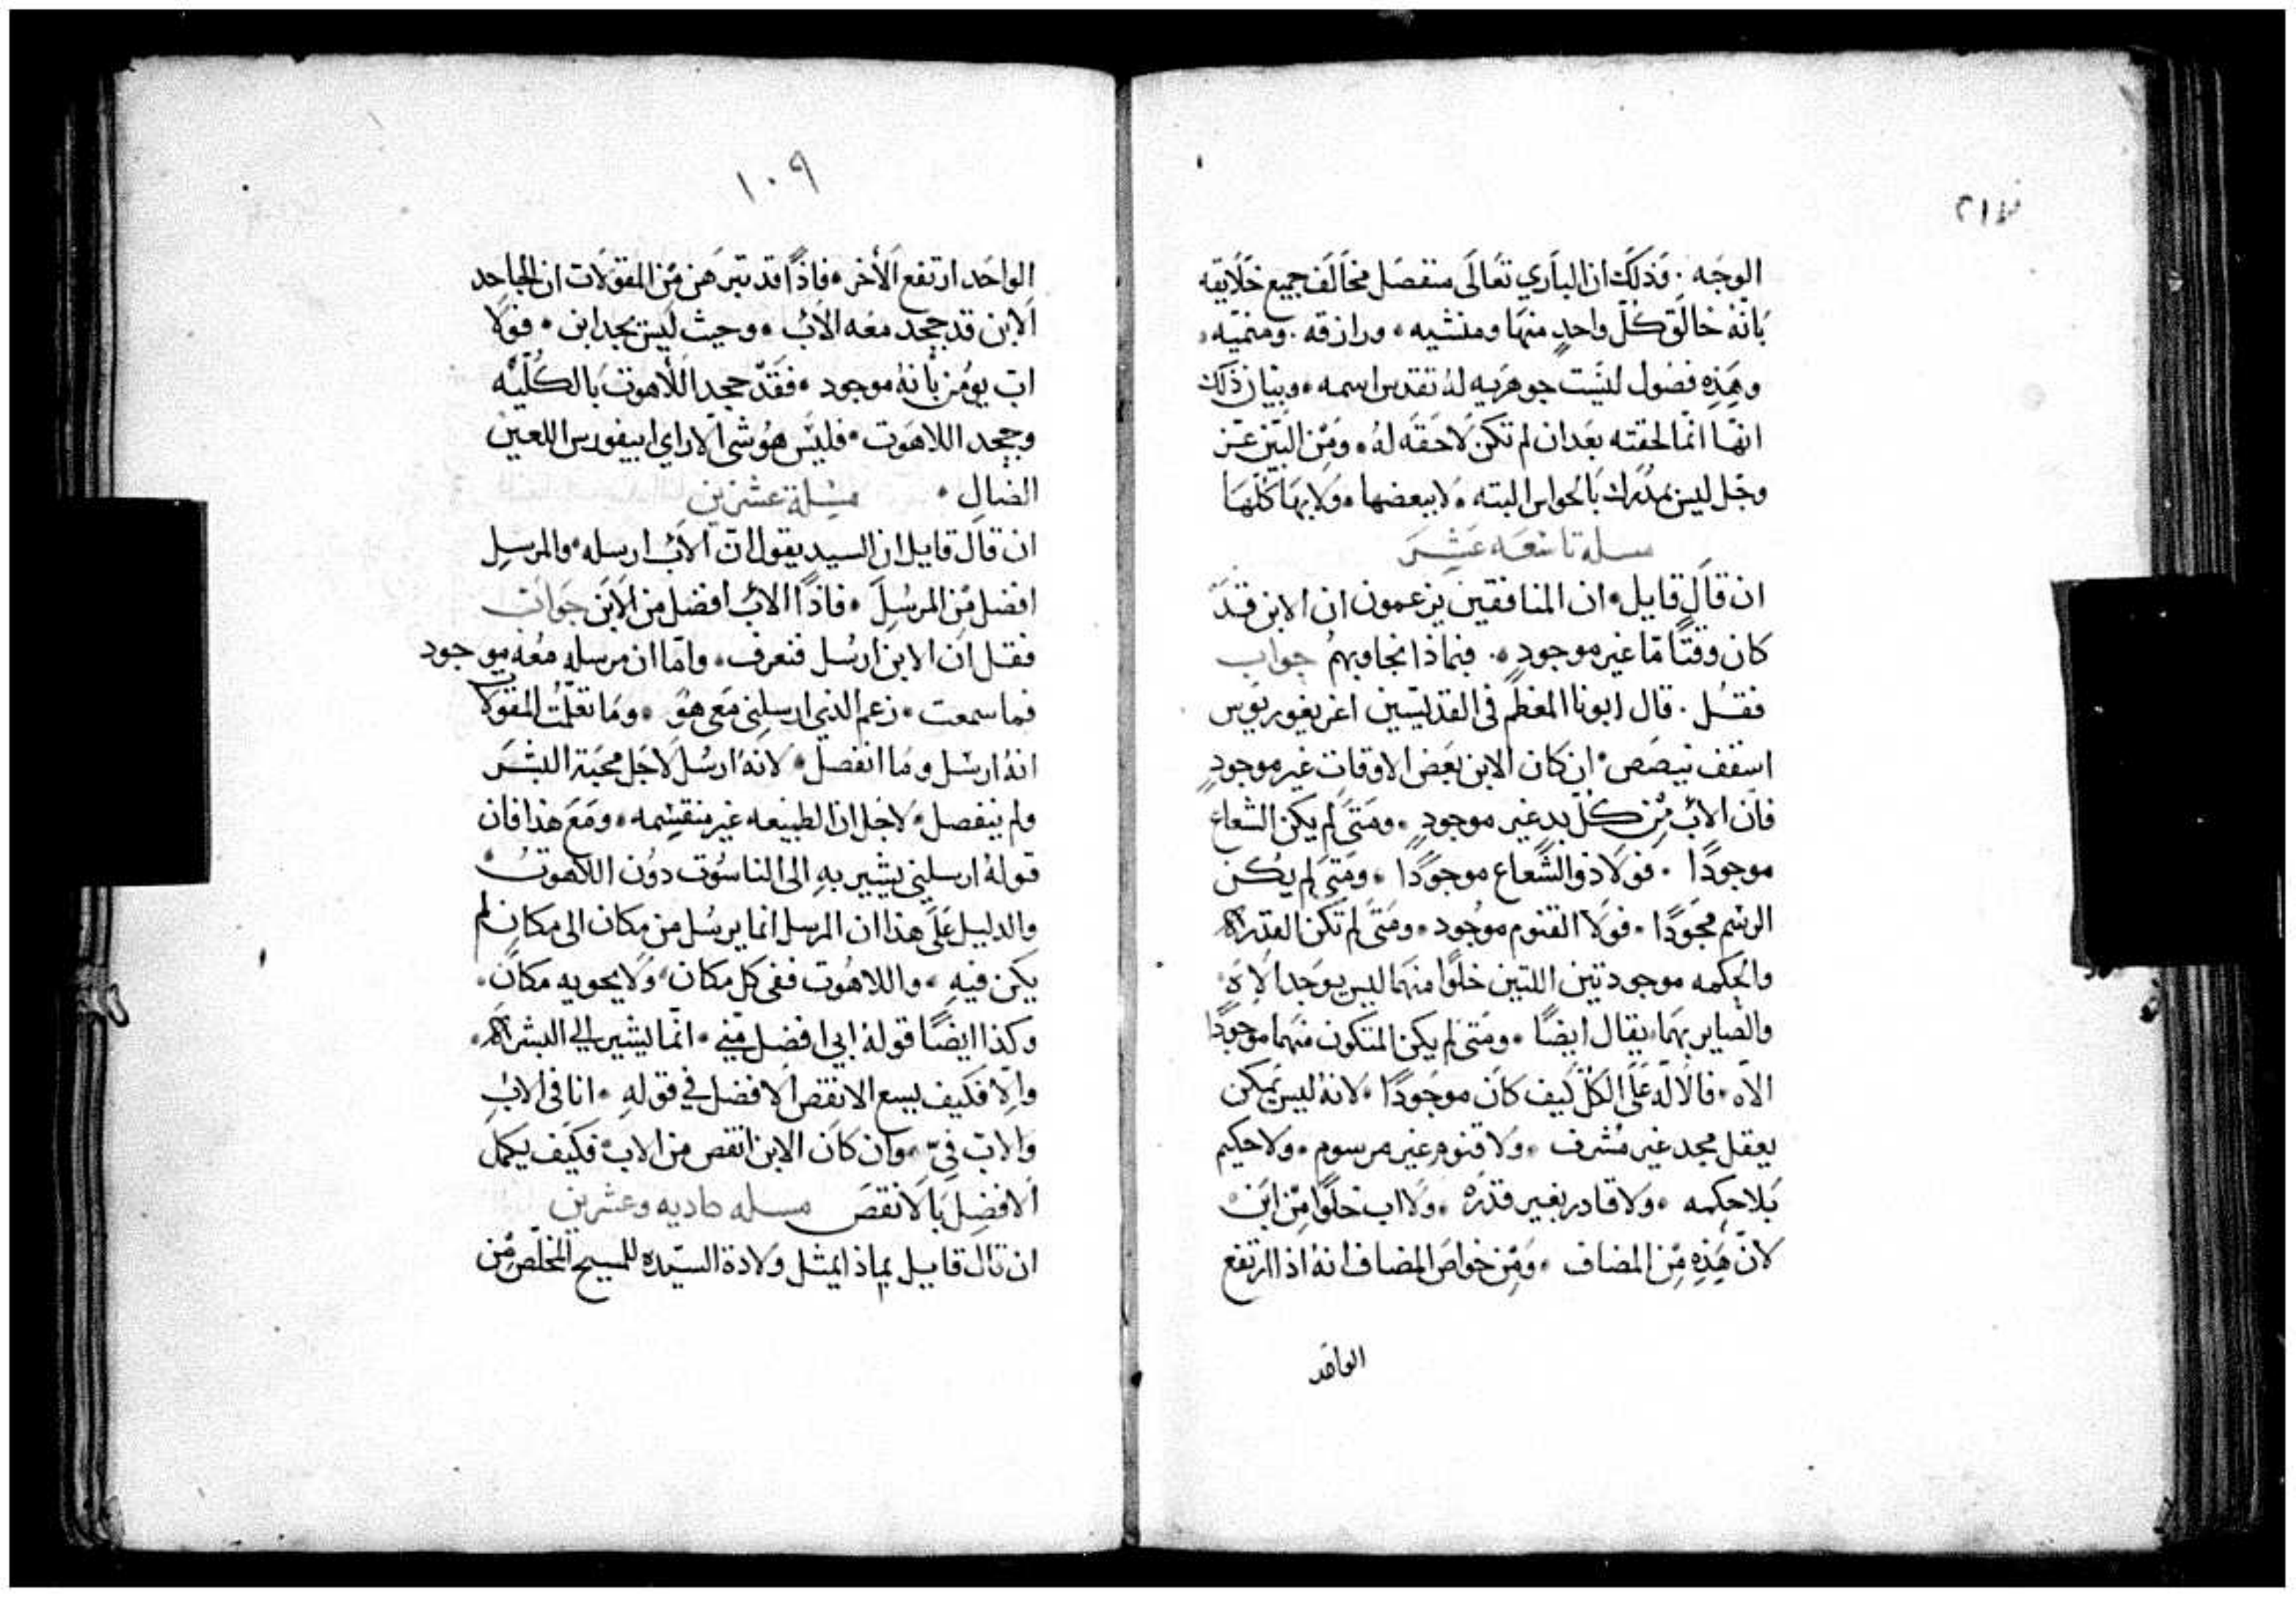 الوجه . وَذلك ان الباري تعالى منفصل مخالف جميع خلايقه
بانه خالق كلّ واحدٍ منها ومنشيه ، ورازقه . ومنميّه ،
وهذه فصُول ليست جوهريه لهُ تقدس اسمه ، وبيان ذلك
انهّا انمّا لحقته بعَد ان لم تكن لاحقه لهُ ، ومِن البيّن عزّ
وجّل ليس بمُدرك بالحواس البته ، لا ببعضها ، ولا بها كلهّا
مسله تاسعه عَشر
ان قال قايل ، ان المنافقين يزعمون ان الابن قد
كان وقتًا مّا غير موجودٍ ، . فبماذا نجاوبهمُ جواب
فقُل . قال ابونا المعظم في القديّسين اغريغوريوس
اسقف نيصص ، ان كان الابن بعَض الاوقات غير موجودٍ
فان الابُ مِن كلّ بدٍ غير موجودٍ ، ومتى لم يكن الشعاع
موجودًا . فولا ذو الشعاع موجودًا ، ومَتى لم يكن
الرسم موجودًا ، فولا القنوم موجود ، ومَتى لم تكن القدره
والحكمه موجودتين اللتين خلوًا منهما ليس يوجد الاه ،
والصاير بهما ، يقال ايضًا ، ومتى لم يكن المتكون منهما موجودًا
الاه ، فالاله على الكلّ كيف كان موجودًا ، لانهُ ليس يمكن
يعقل مجد غير مُشرف ، ولا قنوم غير مرسوم ، ولا حكيم
بلا حكمه ، ولا قادر بغير قدره ، ولا اب خلوًا مِن ابن ،
لانّ هذهِ مِن المضاف ، ومِن خواص المضاف انهُ اذا ارتفع
الواحد
١٠٩
الواحد ارتفع الأخر ، فاذًا قد تبرهن مِن المقولات ان الجاحد
الابن قد جحد معَه الابُ ، وحيث ليس يجد ابن ، فولا
اب يؤمن بأنهُ موجود ، فقَد جحد اللاهوت بالكُليّه
وجحد اللاهوت ، فليس هُو شى الا راي ابيفورس اللعين
الضال ، مسلة عشرين
ان قال قايل ان السيد يقول انّ الابُ ارسله ، والمرسِل
افضل مِن المرسَل ، فاذًا الابُ افضل من الابن جوابُ
فقل ان الابن ارسُل فنعرف ، وامّا ان مرسله معَه موجود
فما سمعت ، زعم الذي ارسلني مَعى هوُ ، وما تعلّمت المقولا
انهُ ارسُل وما انفصل ، لانهُ ارسُل لاجل محبة البشر
ولم ينفصل ، لاجل ان الطبيعه غير منقسمه ، ومَع هذا فان
قولهُ ارسلني يشير بهِ الى الناسُوت دوُن اللاهوت ،
والدليل عَلى هذا ان المرسل انما يرسُل من مكان الى مكانٍ لم
يكن فيهِ ، واللاهُوت ففى كل مكان ، ولا يحويه مكان .
وكذا ايضًا قولهُ ابي افضل مِني ، انمّا يشير الى البشراه ،
والا فكيف يسع الانقص الافضل في قولهِ ، انا فى الابُ
والاب فيّ ، وان كان الابن انقص من الاب ، فكيف يكمل
الافضل بالانقص مسله حاديه وعشرين
ان قال قايل بماذا يمثل ولادة السيّده للمسيح المخلّص مِن